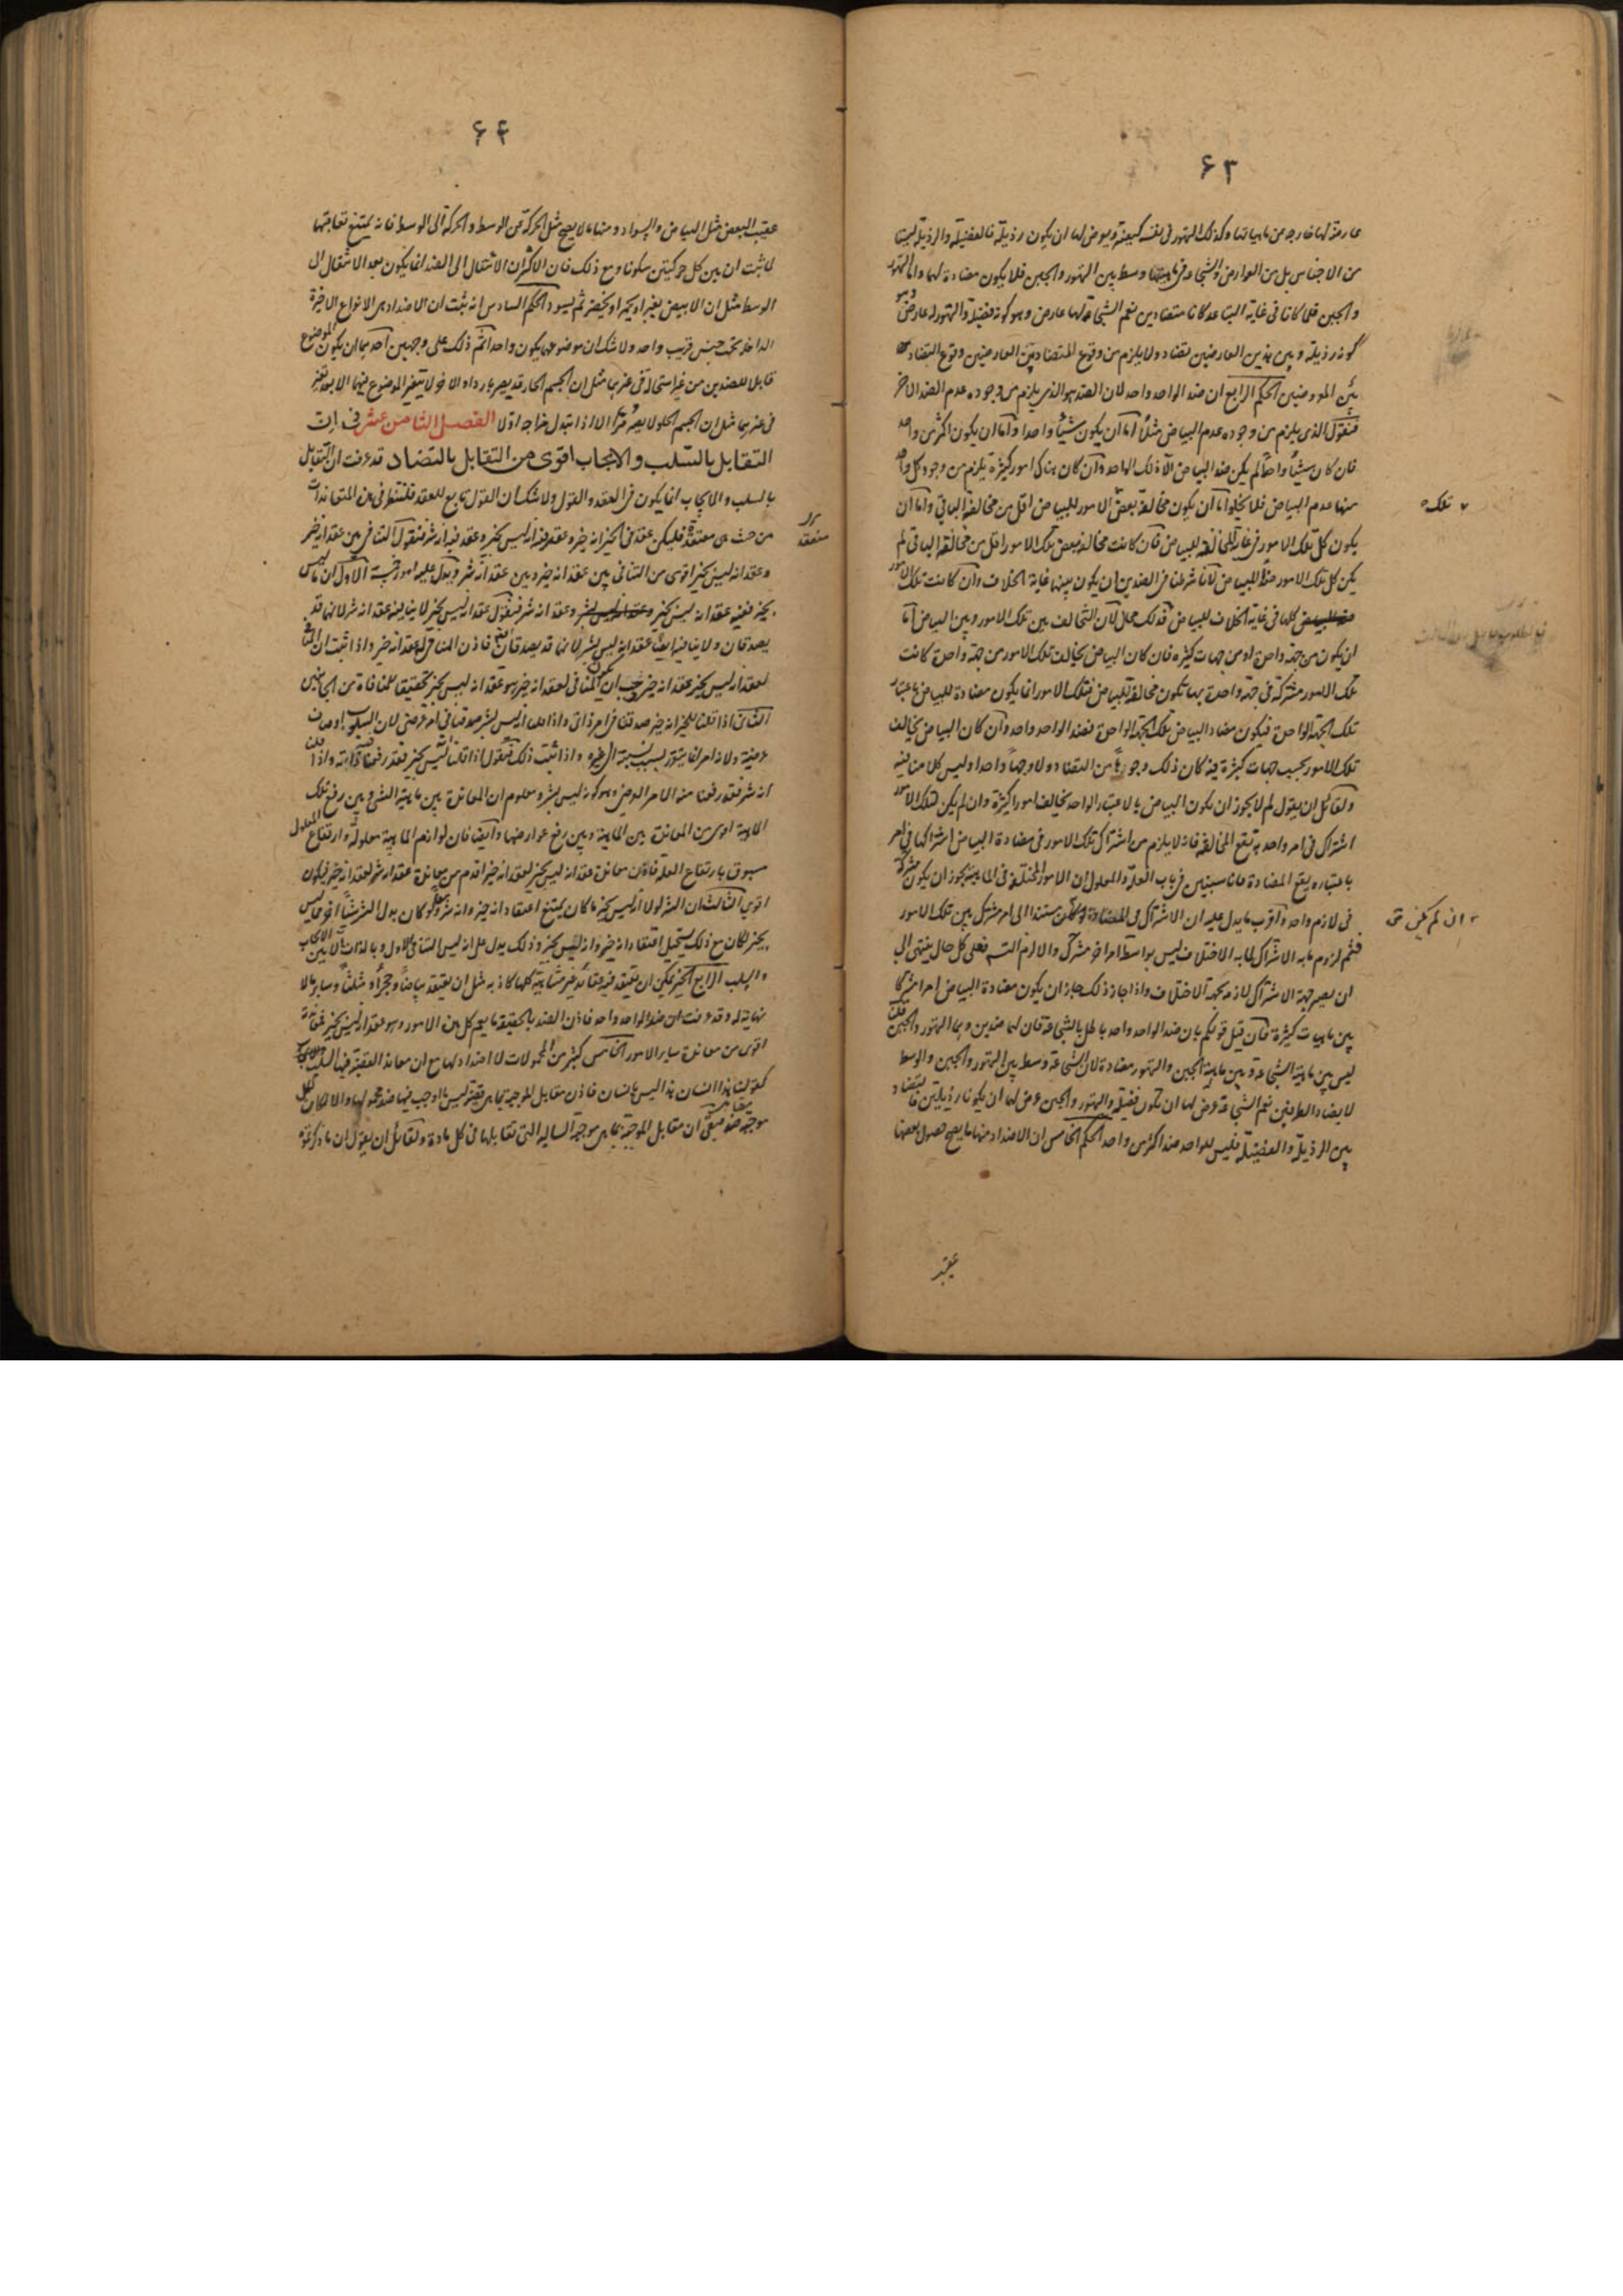 ۶۳
عارضة لها خارجة من ماهياتها وكذلك التهور فى نفسه كيفية ويعرض لها ان يكون رذيلة فالفضيلة والرذيلة ليستا
من الاجناس بل من العوارض والشجاعة فى ماهيتها وسط بين التهور والجبن فلا يكون مضادة لهما واما التهور
والجبن فلما كانا فى غاية التباعد كانا متضادين نعم الشجاعة لها عارض وهو كونه فضيلة والتهور له عارض وهو
كونه رذيلة وبين هذين العارضين تضاد ولا يلزم من وقوع المتضادين العارضين وقوع التضاد
بين المعروضين الحكم الرابع ان ضد الواحد واحد لان الضد هو الذى يلزم من وجوده عدم الضد الاخر
فنقول الذى يلزم من وجوده عدم البياض مثلا اما ان يكون شيئا واحدا واما ان يكون اكثر من واحد
فان كان شيئا واحدا لم يكن ضد البياض الا ذلك الواحد وان كان هناك امور كثيرة يلزم من وجود كل واحد
منها عدم البياض فلا يخلو اما ان يكون مخالفة بعض الامور للبياض اقل من مخالفة الباقى واما ان
يكون كل تلك الامور فى غاية المخالفة للبياض فان كانت مخالفة بعض تلك الامور اقل من مخالفة الباقى لم
يكن كل تلك الامور ضدا للبياض لانا شرطنا فى الضدين ان يكون بينهما غاية الخلاف وان كانت تلك الامور
كلها فى غاية الخلاف للبياض فذلك محال لان التخالف بين تلك الامور وبين البياض اما
ان يكون من جهة واحدة او من جهات كثيرة فان كان البياض يخالف تلك الامور من جهة واحدة كانت
تلك الامور مشتركة فى جهة واحدة بها تكون مخالفة للبياض فتلك الامور انما يكون مضادة للبياض باعتبار
تلك الجهة الواحدة فيكون مضاد البياض تلك الجهة الواحدة فضد الواحد واحد وان كان البياض يخالف
تلك الامور بحسب جهات كثيرة فيه كان ذلك وجوها من التضاد ولا وجها واحدا وليس كلامنا فيه
ولقائل ان يقول لم لا يجوز ان يكون البياض بالاعتبار الواحد يخالف امورا كثيرة وان لم يكن لتلك الامور
اشتراك فى امر واحد به تقع المخالفة فانه لا يلزم من اشتراك تلك الامور فى مضادة البياض اشتراكها فى امر
باعتباره يقع المضادة فانا سنبين فى باب العلة والمعلول ان الامور المختلفة فى الماهية يجوز ان يكون مشتركة
فى لازم واحد واقرب ما يدل عليه ان الاشتراك فى مستندا الى امر مشترك بين تلك الامور
فثم لزوم ما به الاشتراك لما به الاختلاف ليس بواسطة امر اخر مشترك والا لزم التسـ فعلى كل حال ينتهى الى
ان يصير جهة الاشتراك لازمة لجهة الاختلاف واذا جاز ذلك جاز ان يكون مضادة البياض امرا مشتركا
بين ماهيات كثيرة فان قيل قولكم بان ضد الواحد واحد باطل بالشجاعة فان لها ضدين وهما التهور والجبن قلنا
ليس بين ماهية الشجاعة وبين ماهية الجبن والتهور مضادة لان الشجاعة وسط بين التهور والجبن والوسط
لا يضاد الطرفين نعم الشجاعة عرض لها ان تكون فضيلة والتهور والجبن عرض لهما ان يكونا رذيلتين فالتضاد
بين الرذيلة والفضيلة فليس للواحد ضد اكثر من واحد الحكم الخامس ان الاضداد منها ما يصح حصول بعضها
عقيب
تلك
ان لم يكن
۶۴
عقيب البعض مثل البياض والسواد ومنها ما لا يصح مثل الحركة عن الوسط والحركة الى الوسط فانه يمتنع تعاقبهما
لما ثبت ان بين كل حركتين سكونا ومع ذلك فان الاكثر ان الانتقال الى الضد انما يكون بعد الانتقال الى
الوسط مثل ان الابيض يغبر او يحمر او يخضر ثم يسود الحكم السادس انه ثبت ان الاضداد هى الانواع الاخيرة
الداخلة تحت جنس قريب واحد ولا شك ان موضوعها يكون واحدا ثم ذلك على وجهين احدهما ان يكون الموضوع
قابلا للضدين من غير استحالة فى غيرهما مثل ان الجسم الحار قد يصير باردا والاخر لا يتغير الموضوع فيهما الا بعد تغير
فى غيرهما مثل ان الجسم الحلو لا يصير مرا الا اذا تبدل مزاجه اولا الفصل الثامن عشر فى ان
التقابل بالسلب والايجاب اقوى من التقابل بالتضاد قد عرفت ان التقابل
بالسلب والايجاب انما يكون فى العقد والقول ولا شك ان القول تابع للعقد فلننظر فى هذه المتعاندات
من حيث هى معتقدة فليكن عقد فى الخير انه خير وعقد فيه انه ليس بخير وعقد فيه انه شر فنقول التنافى بين عقد انه خير
وعقد انه ليس بخير اقوى من التنافى بين عقد انه خير وبين عقد انه شر ويدل عليه امور خمسة الاول ان ما ليس
بخير ففيه عقد انه ليس بخير وعقد انه شر فنقول عقد انه ليس بخير لا ينافيه عقد انه شر لانهما قد
يصدقان ولا ينافيه ايضا عقد انه ليس بشر لانهما قد يصدقان فاذن المنافى له عقد انه خير واذا ثبت ان المنافى
لعقد انه ليس بخير عقد انه خير وجب ان يكون المنافى لعقد انه خير هو عقد انه ليس بخير تحقيقا للمنافاة من الجانبين
الثانى اذا قلنا للخير انه خير صدقنا فى امر ذاتى واذا قلنا انه ليس بشر صدقنا فى امر عرضى لان السلوب اوصاف
عرضية ولانه امر انما يتقرر بسبب نسبة الى غيره واذا ثبت ذلك فنقول اذا قلنا انه ليس بخير فقد رفعنا عنه ذاته واذا قلنا
انه شر فقد رفعنا عنه الامر العرضى وهو كونه ليس بشر ومعلوم ان المعاندة بين ماهية الشئ وبين رفع تلك
الماهية اقوى من المعاندة بين الماهية وبين رفع عوارضها وايضا فان لوازم الماهية معلولة وارتفاع المعلول
مسبوق بارتفاع العلة فاذن معاندة عقد انه ليس بخير لعقد انه خير اقدم من معاندة عقد انه شر لعقد انه خير فيكون
اقوى الثالث ان الشر لولا انه ليس بخير ما كان يمتنع اعتقاد انه خير وانه شر ولو كان بدل الشر شيئا اخر مما ليس
بخير لكان مع ذلك يستحيل اعتقاد انه خير وانه ليس بخير وذلك يدل على انه ليس التنافى الاول وبالذات الا بين الايجاب
والسلب الرابع الخير يمكن ان يعتقد فيه عقائد غير متناهية كلها كاذبة مثل ان يعتقد بياضا وحجرا ومثلثا وسائر ما لا
نهاية له وقد عرفت ان ضد الواحد واحد فاذن الضد بالحقيقة ما يعم كل هذه الامور وهو عقد انه ليس بخير فمعاندته
اقوى من معاندة سائر الامور الخامس كثير من المحمولات لا اضداد لها مع ان معاند القضية فيها السلب والايجاب
كقولنا هذا انسان هذا ليس بانسان فاذن مقابل الموجبة بما هى قضية ليس ما اوجب فيها ضد محمولها والا لكان لكل
موجبة ضد فبقى ان مقابل الموجبة بما هى موجبة السالبة التى تقابلها فى كل مادة ولقائل ان يقول ان ما ذكرتموه